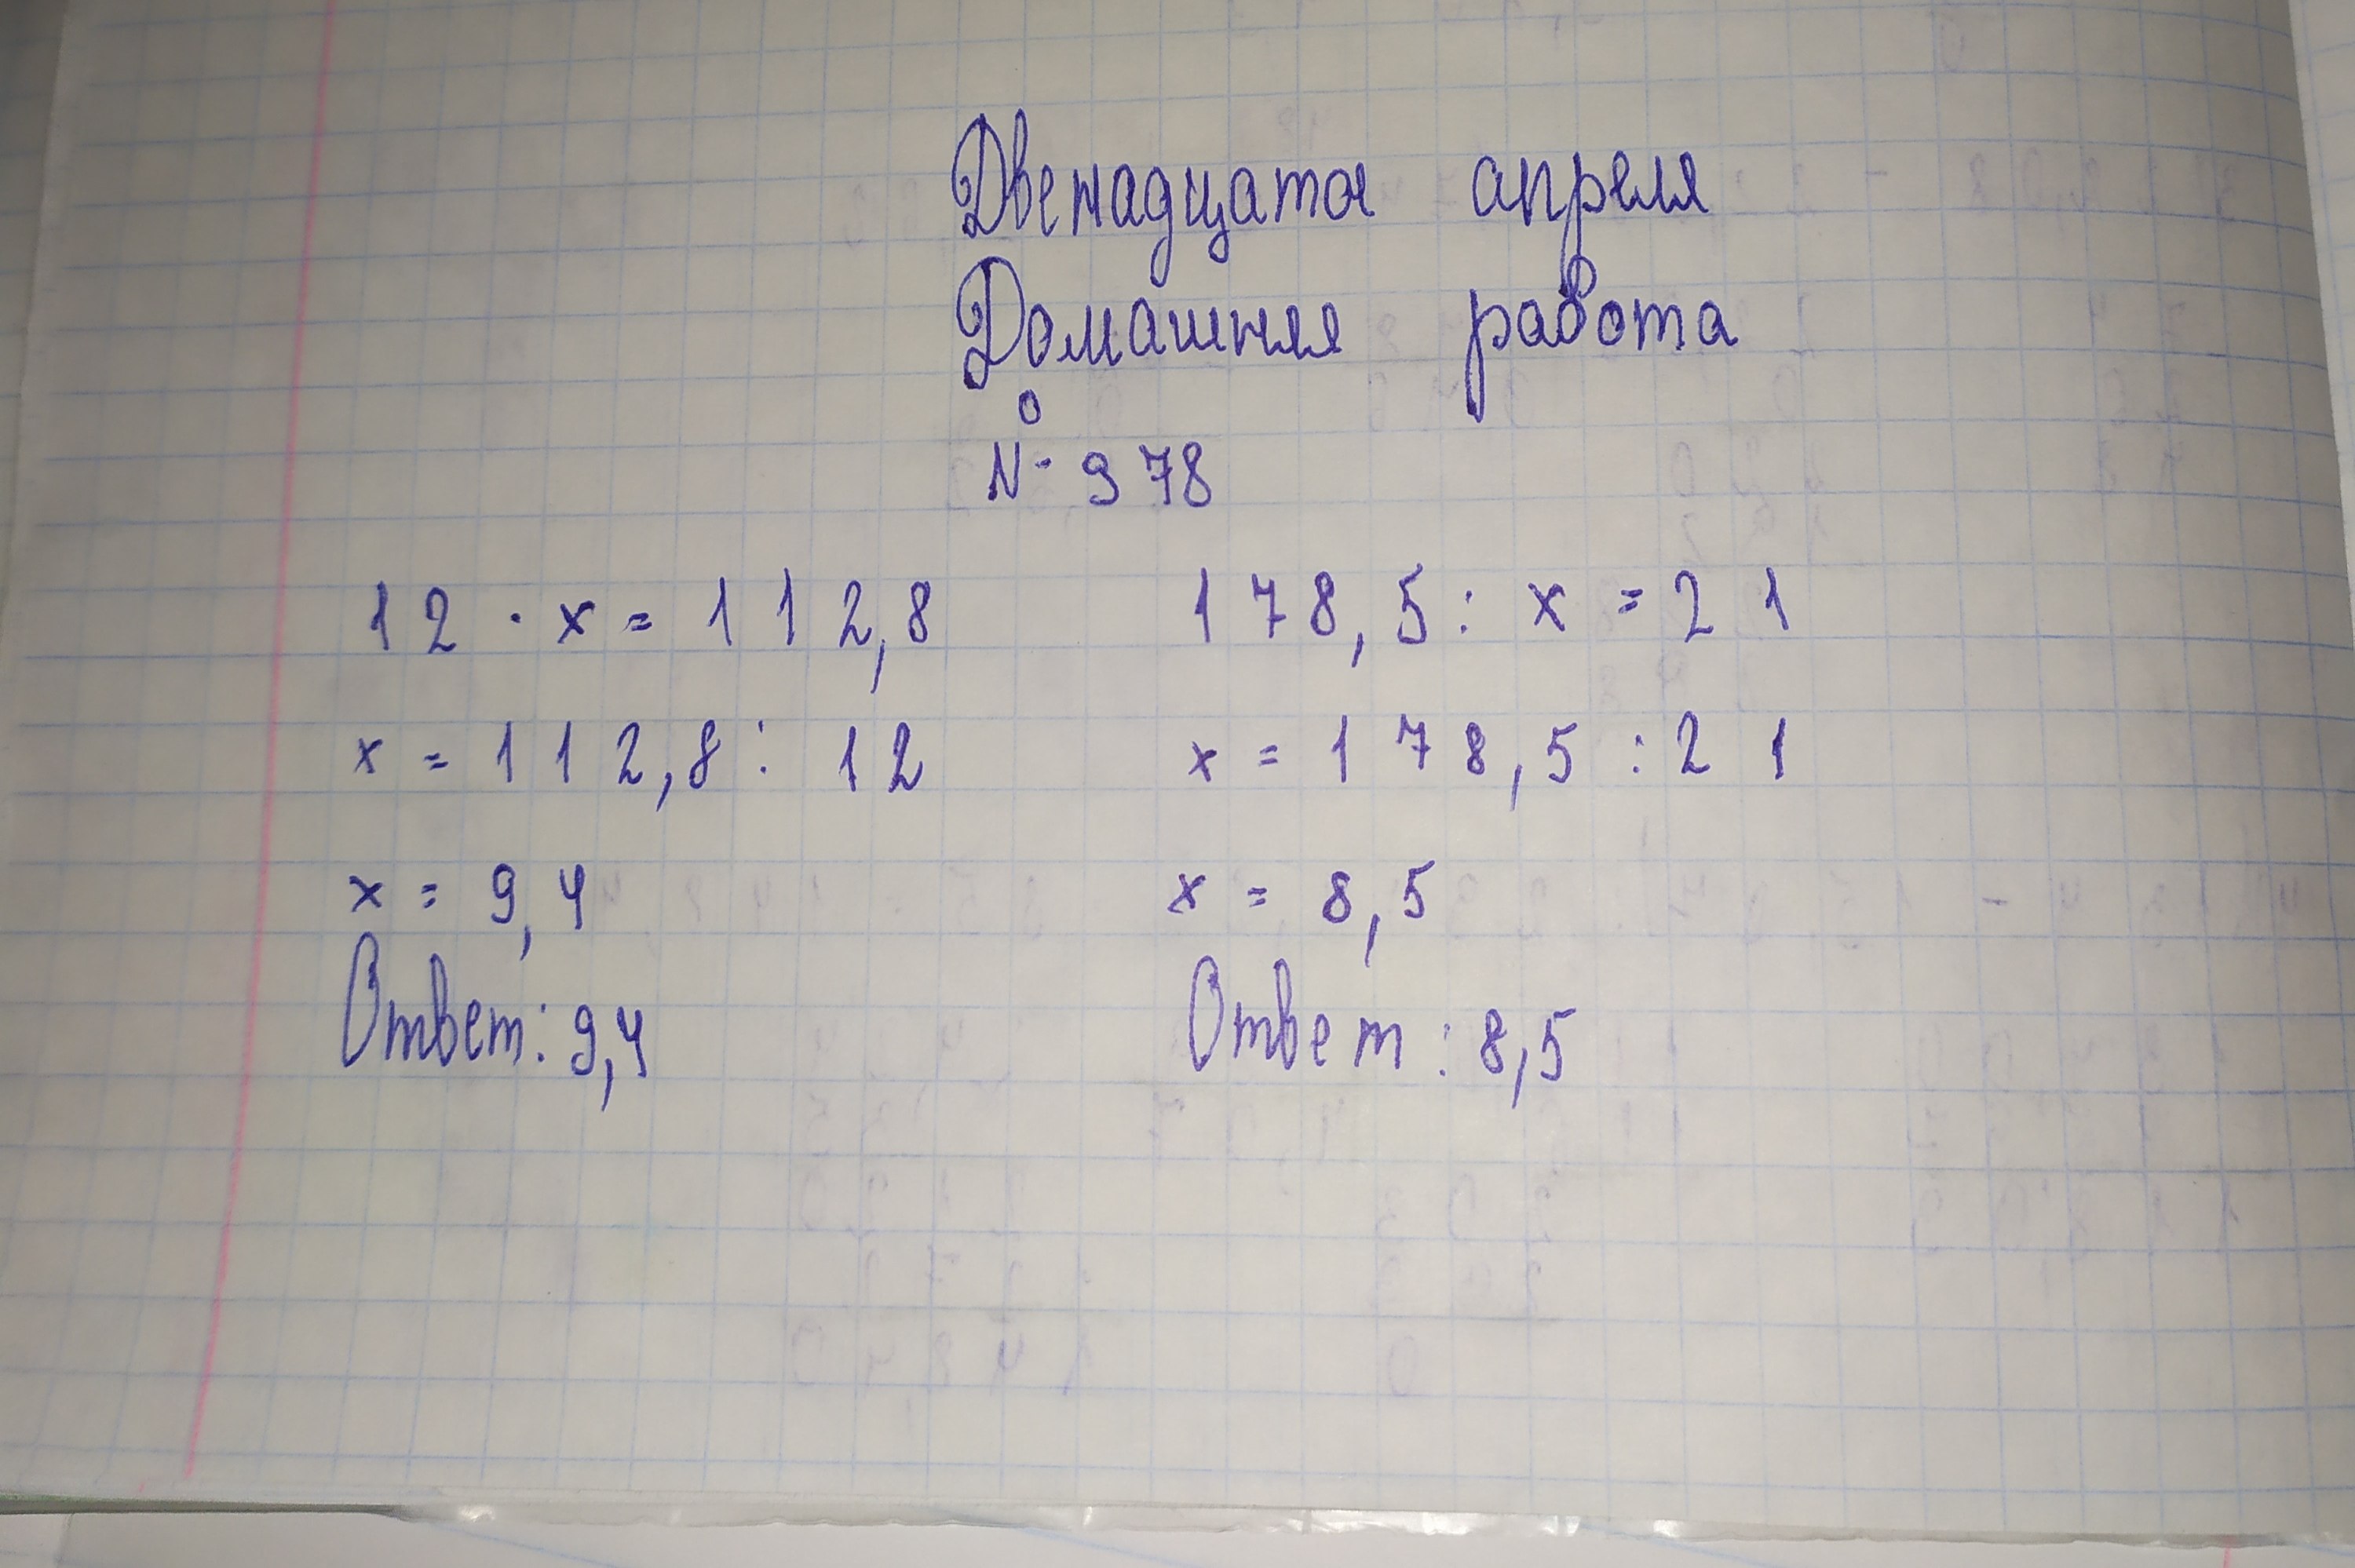 Двенадцатое апреля
Домашняя работа
№ 978
12 · x = 112,8
x = 112,8 : 12
x = 9,4
Ответ: 9,4
178,5 : x = 21
x = 178,5 : 21
x = 8,5
Ответ: 8,5